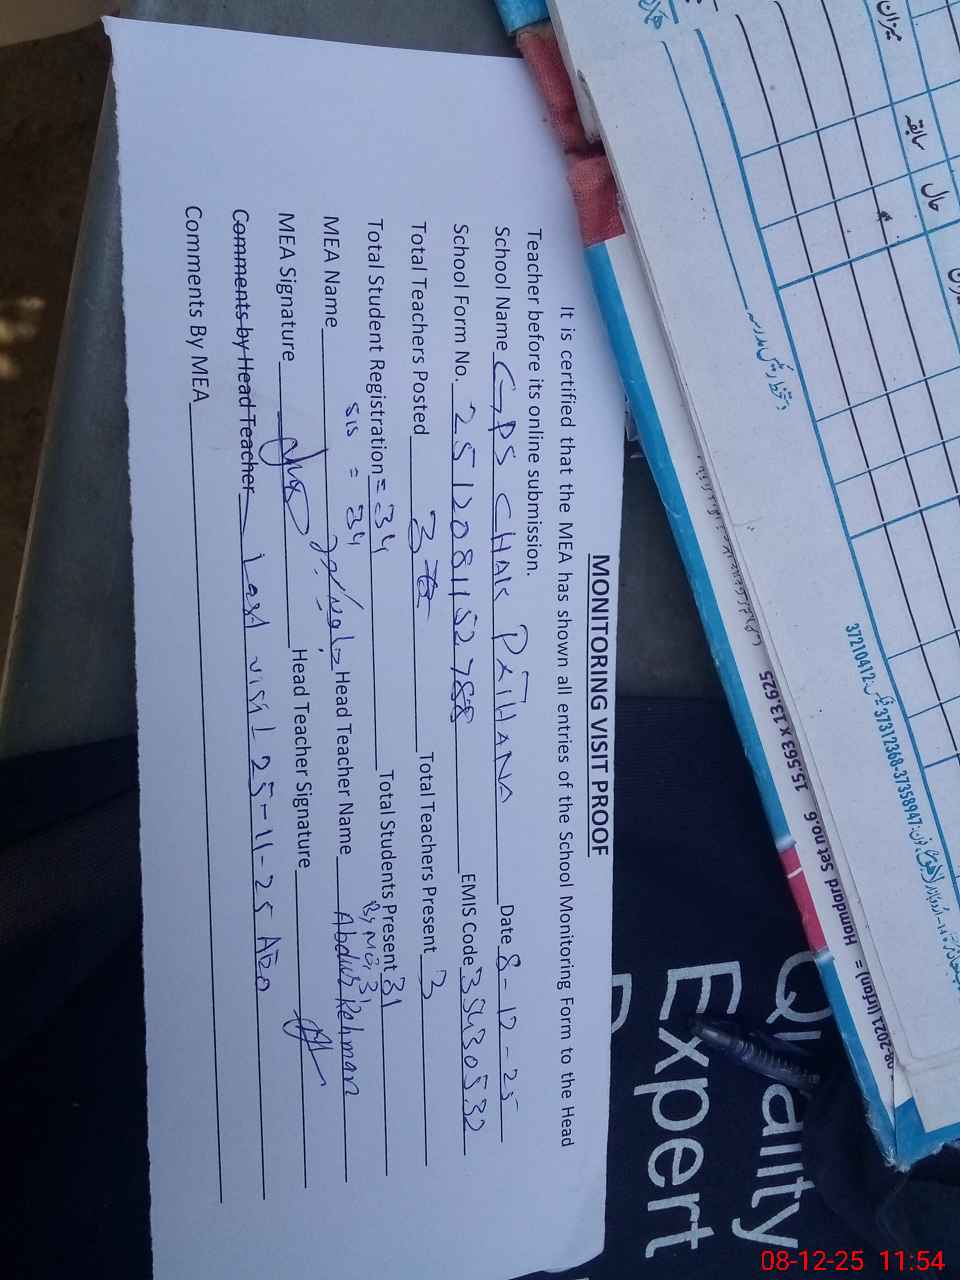 MONITORING VISIT PROOF
It is certified that the MEA has shown all entries of the School Monitoring Form to the Head
Teacher before its online submission.
School Name GPS CHAK PXIHANA Date 8-12-25
School Form No. 2512081152788 EMIS Code 35430532
Total Teachers Posted 3 Total Teachers Present 3
Total Student Registration = 34 Total Students Present 31
SIS = 34 By MEA 31
MEA Name Head Teacher Name Abdur Rehman
MEA Signature Head Teacher Signature
Comments by Head Teacher Last visit 25-11-25 AEO
Comments By MEA
میزان
سابقہ
حال
دستخط رئیس مدرسہ
37210412
37312368-37358947
08-2021 (Irfan) = Hamdard Set no.6 15.563 x 13.625
Quality
Expert
08-12-25 11:54